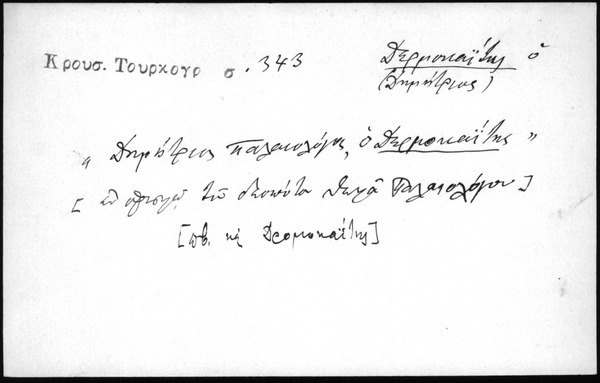 Κρουσ. Τουρκογρ σ. 343
Δερμοκαΐτης ὁ
(Δημήτριος)
„ Δημήτριος Παλαιολόγος, ὁ Δερμοκαΐτης „
[ τοῦ δεσπότα Θωμᾶ Παλαιολόγου]
[πβ. κ Δρομοκαΐτης]